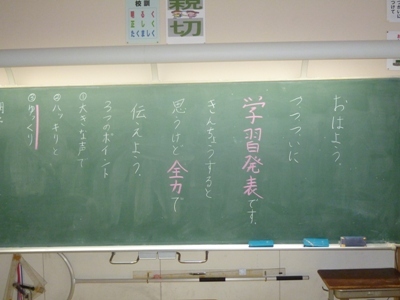 親切
校訓
明るく
正しく
たくましく
おはよう。
ついに
学習発表です。
きんちょうすると
思うけど全力で
伝えよう。
3つのポイント
①大きな声で
②ハッキリと
③ゆっくり